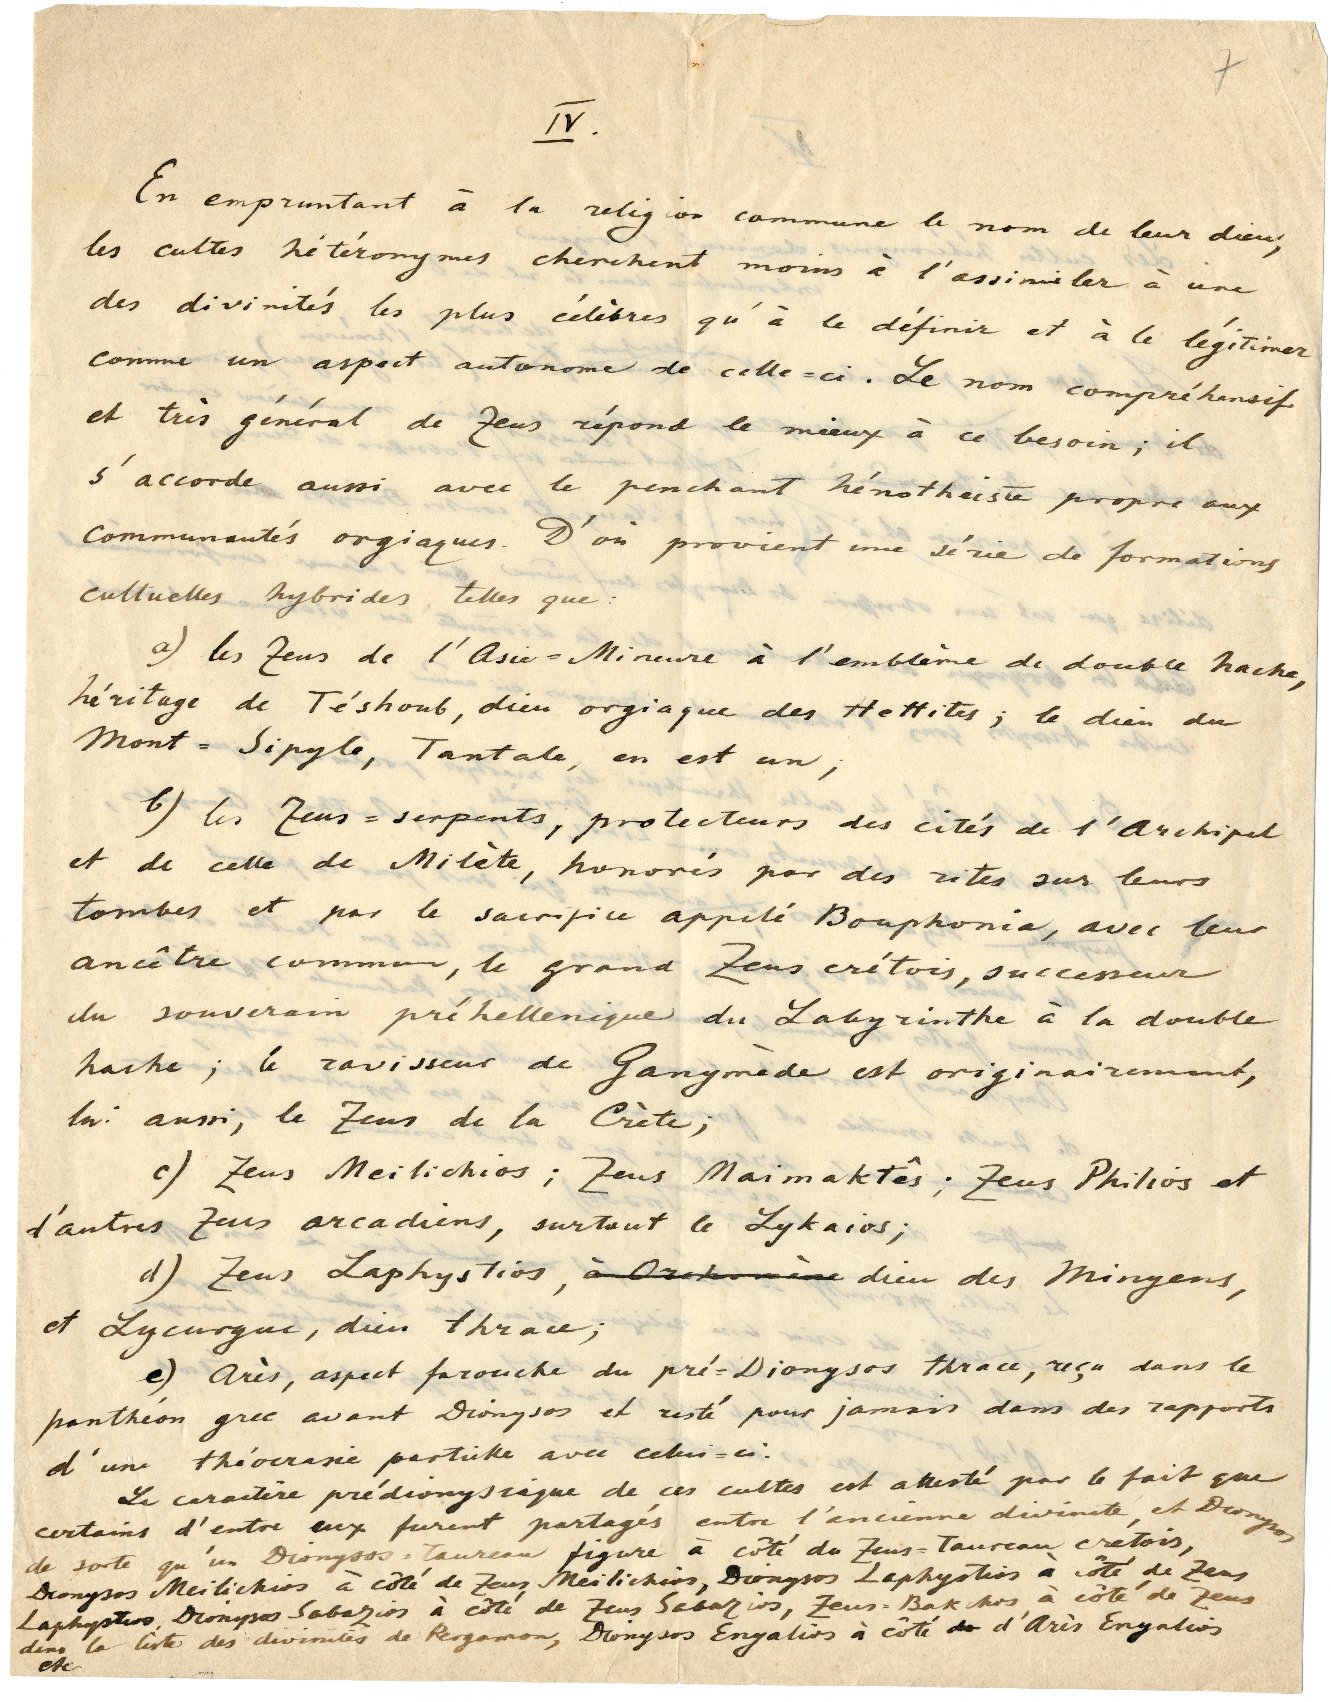 7
IV.
En empruntant à la religion commune le nom de leur dieu,
les cultes hétéronymes cherchent moins à l'assimiler à une
des divinités les plus célèbres qu'à le définir et à le légitimer
comme un aspect autonome de celle=ci. Le nom compréhensif
et très général de Zeus répond le mieux à ce besoin ; il
s'accorde aussi avec le penchant hénothéiste propre aux
communautés orgiaques. D'où provient une série de formations
cultuelles hybrides telles que :
a) les Zeus de l'Asie=Mineure à l'emblème de double hache,
héritage de Téshoub, dieu orgiaque des Hettites ; le dieu du
Mont=Sipyle, Tantale, en est un ;
b) les Zeus=serpents, protecteurs des cités de l'Archipel
et de celle de Milète, honorés par des rites sur leurs
tombes et par le sacrifice appelé Bouphonia, avec leur
ancêtre commun, le grand Zeus crétois, successeur
du souverain préhellenique du Labyrinthe à la double
hache ; le ravisseur de Ganymède est originairement,
lui aussi, le Zeus de la Crète ;
c) Zeus Meilichios ; Zeus Maimaktês ; Zeus Philios et
d'autres Zeus arcadiens, surtout le Lykaios ;
d) Zeus Laphystios, à Orchomène dieu des Minyens,
et Lycurgue, dieu thrace ;
e) Arès, aspect farouche du pré=Dionysos thrace, reçu dans le
panthéon grec avant Dionysos et resté pour jamais dans des rapports
d'une théocrasie partielle avec celui=ci.
Le caractère prédionysiaque de ces cultes est attesté par le fait que
certains d'entre eux furent partagés entre l'ancienne divinité et Dionysos
de sorte qu'un Dionysos=taureau figure à côté du Zeus=taureau crétois,
Dionysos Meilichios à côté de Zeus Meilichios, Dionysos Laphystios à côté de Zeus
Laphystios, Dionysos Sabazios à côté de Zeus Sabazios, Zeus=Bakchos à côté de Zeus
dans la liste des divinités de Pergamon, Dionysos Enyalios à côté d'Arès Enyalios
etc